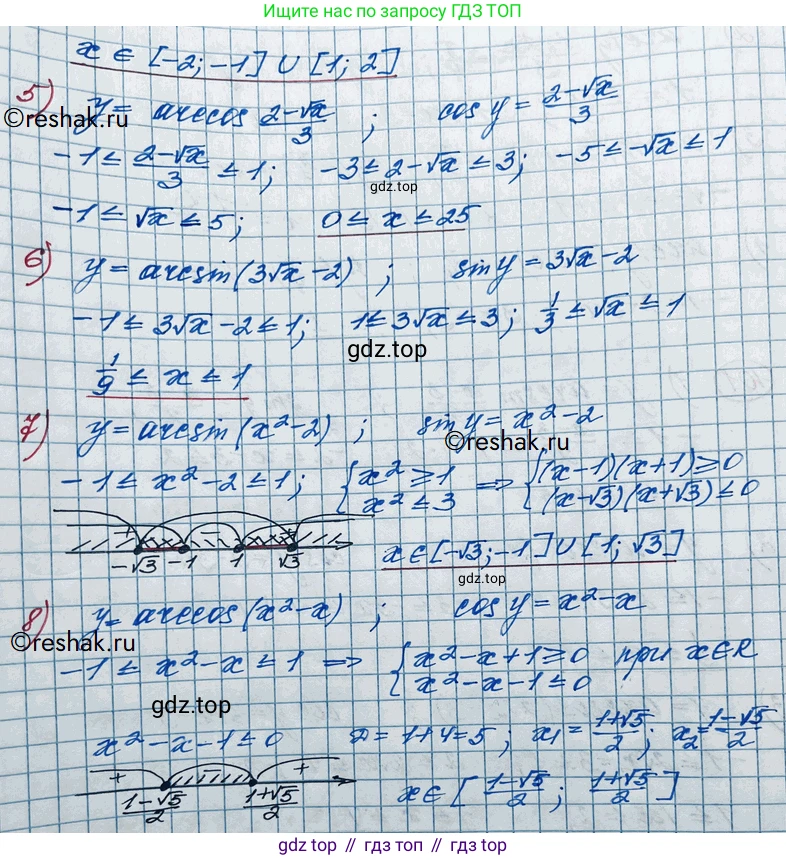 Ищите нас в поиске по запросу ГДЗ ТОП
x ∈ [-2; -1] ∪ [1; 2]
5) y = arccos (2-√x)/3 ; cos y = (2-√x)/3
©reshak.ru
-1 ≤ (2-√x)/3 ≤ 1; -3 ≤ 2-√x ≤ 3; -5 ≤ -√x ≤ 1
gdz.top
-1 ≤ √x ≤ 5; 0 ≤ x ≤ 25
6) y = arcsin(3√x-2) ; sin y = 3√x-2
-1 ≤ 3√x-2 ≤ 1; 1 ≤ 3√x ≤ 3; 1/3 ≤ √x ≤ 1
gdz.top
1/9 ≤ x ≤ 1
7) y = arcsin(x²-2) ; sin y = x²-2
©reshak.ru
-1 ≤ x²-2 ≤ 1; { x² ≥ 1 => { (x-1)(x+1) ≥ 0
x² ≤ 3 (x-√3)(x+√3) ≤ 0
+ - +
-√3 -1 1 √3
x ∈ [-√3; -1] ∪ [1; √3]
gdz.top
8) y = arccos(x²-x) ; cos y = x²-x
©reshak.ru
-1 ≤ x²-x ≤ 1 => { x²-x+1 ≥ 0 при x ∈ R
x²-x-1 ≤ 0
gdz.top
x²-x-1 ≤ 0 D = 1+4 = 5 ; x₁ = (1+√5)/2 ; x₂ = (1-√5)/2
+ - +
(1-√5)/2 (1+√5)/2
x ∈ [ (1-√5)/2 ; (1+√5)/2 ]
gdz.top // гдз.топ // gdz.top